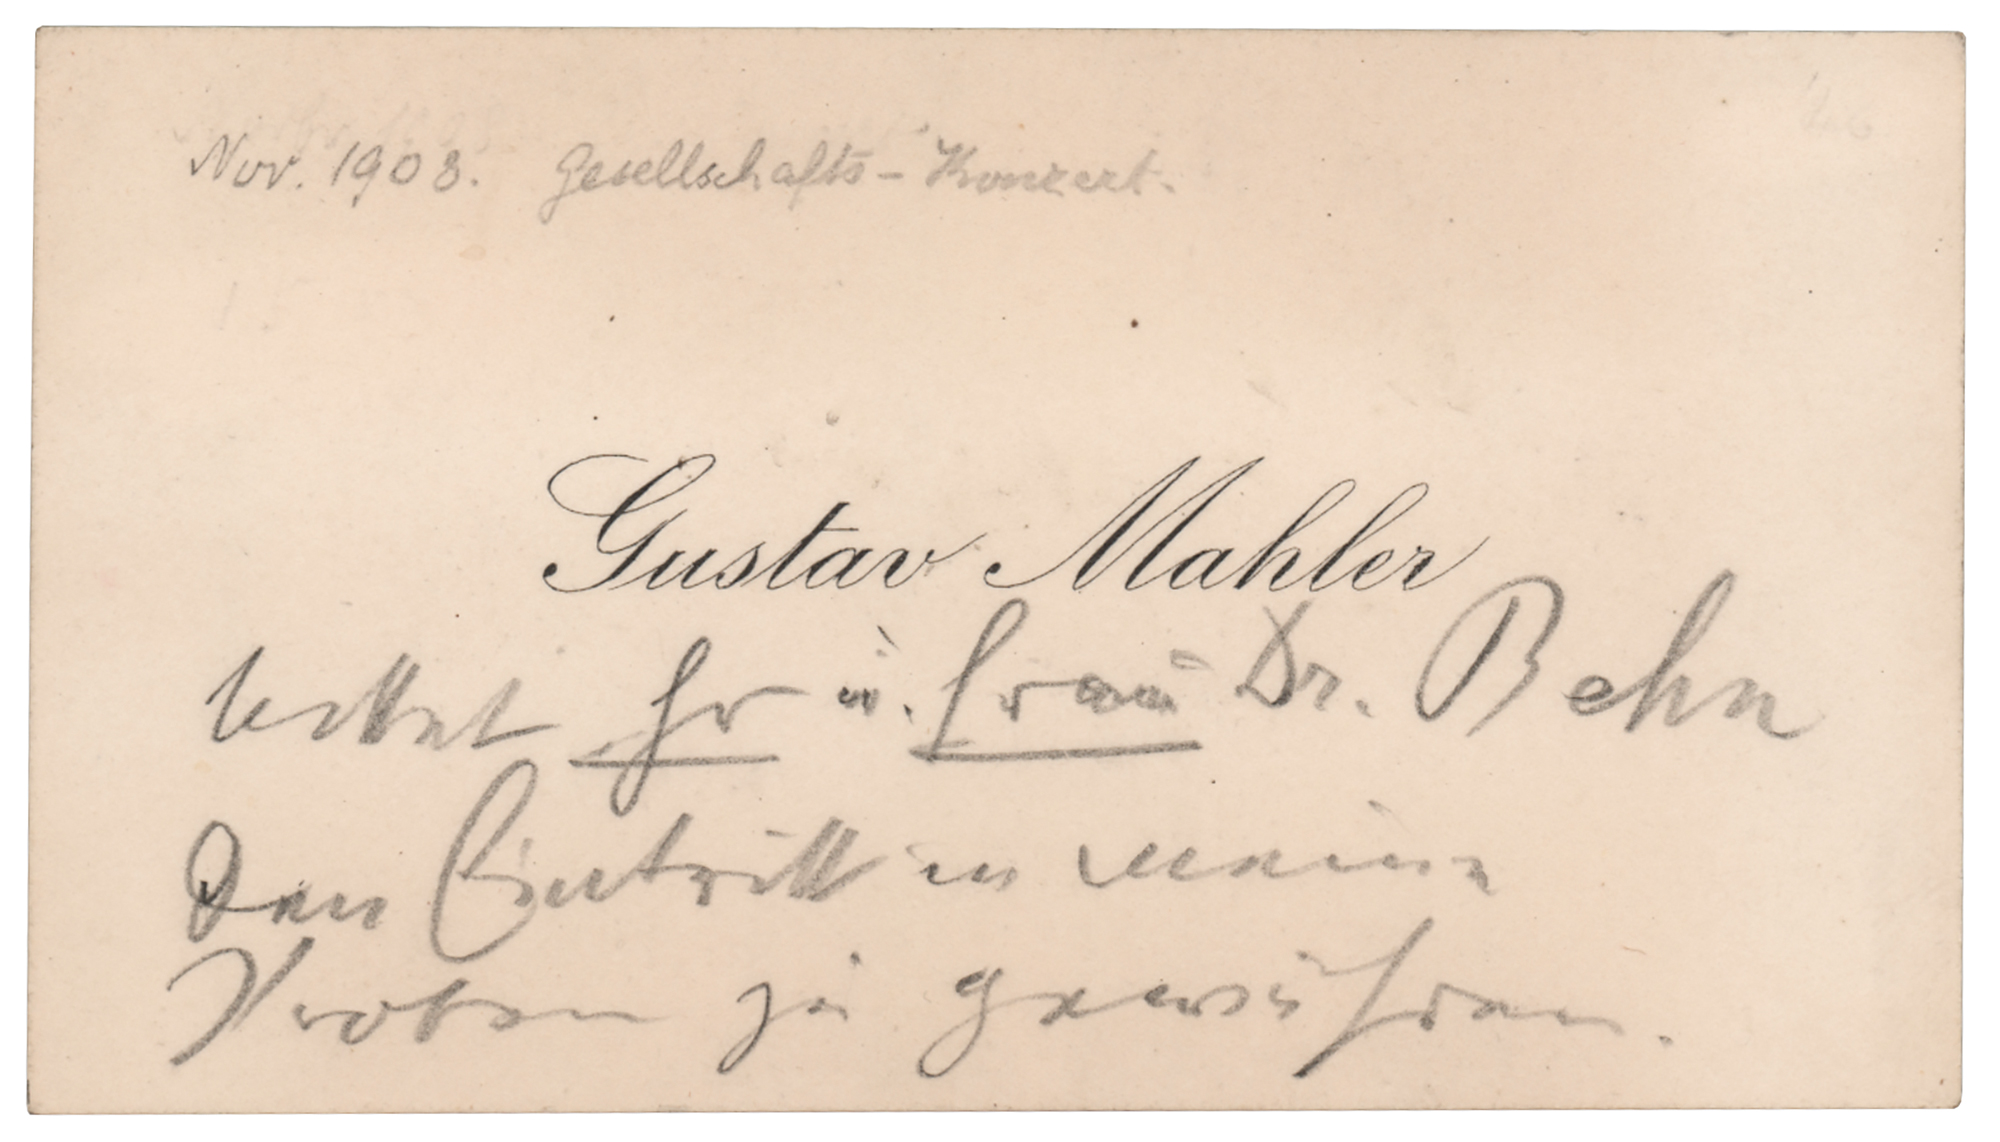 Nov. 1908. Gesellschafts-Konzert.
Gustav Mahler
bittet Hr u. Frau Dr. Behn
den Eintritt in meine
Proben zu gewähren.